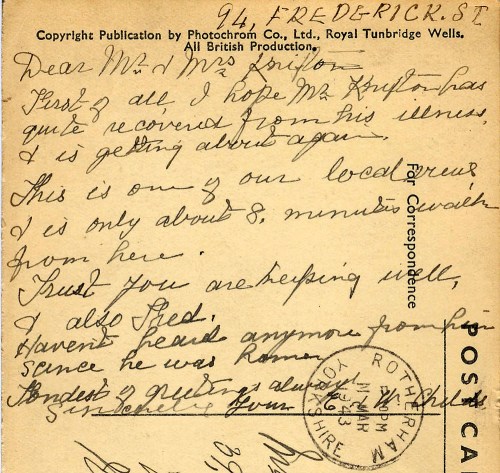 94, FREDERICK. ST
Copyright Publication by Photochrom Co., Ltd., Royal Tunbridge Wells.
All British Production.
Dear Mr. & Mrs
First of all I hope Mr has
quite recovered from his illness,
& is getting about again.
This is one of our local views
& is only about 8. minutes walk
from here.
Trust you are keeping well,
& also Fred.
Havent heard anymore from him
scince he was home.
Kindest of greetings always
Sincerely Yours
For Correspondence
POST CA
ROTHERHAM
YORKSHIRE
PM
MAR